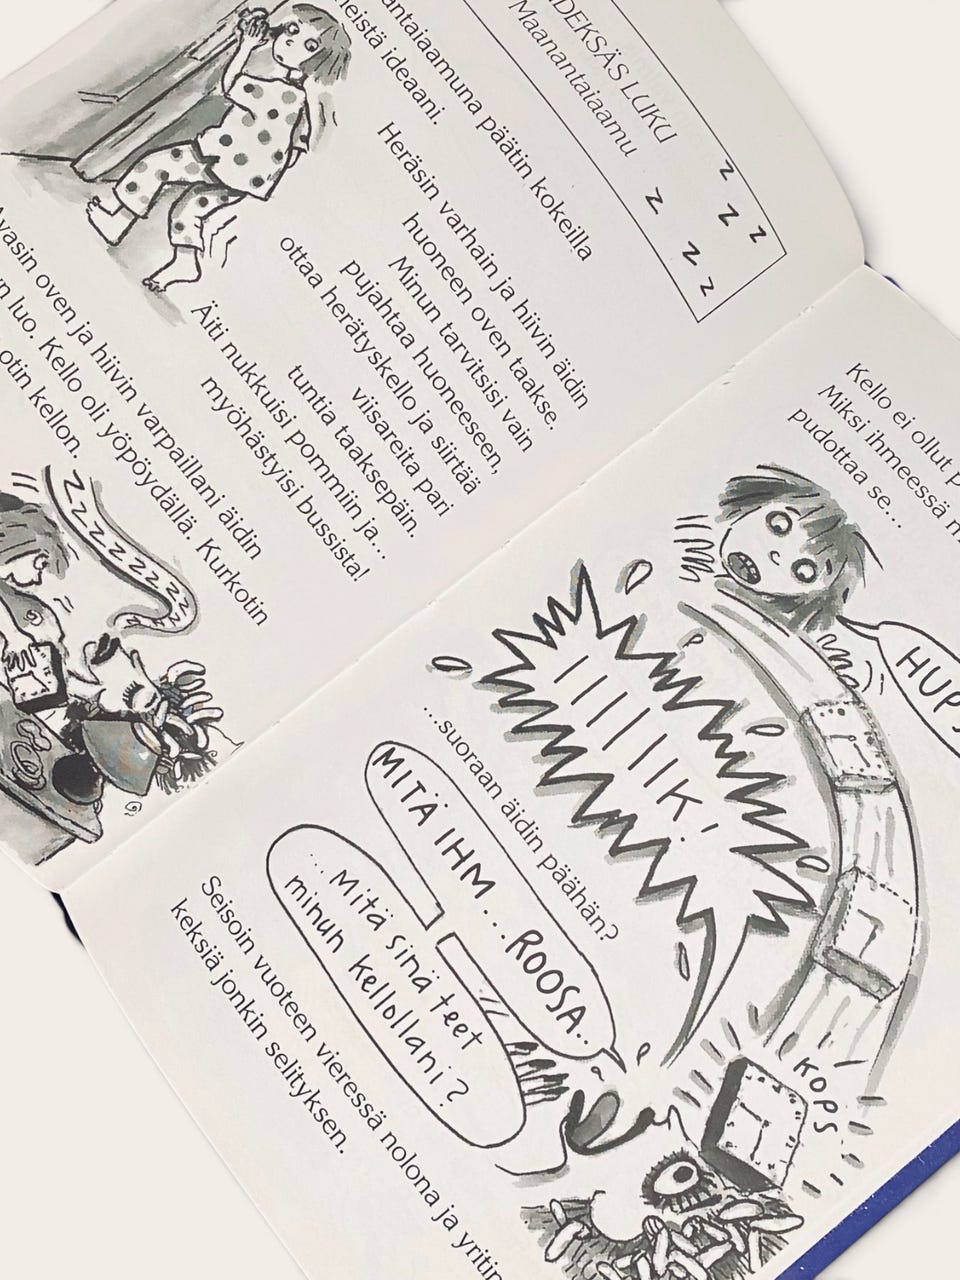 LUKU
Maanantaiaamu
z
z z
z
z z
päätin kokeilla
ideaani.
Heräsin varhain ja hiivin äidin
huoneen oven taakse.
Minun tarvitsisi vain
pujahtaa huoneeseen,
ottaa herätyskello ja siirtää
viisareita pari
tuntia taaksepäin.
Äiti nukkuisi pommiin ja...
myöhästyisi bussista!
oven ja hiivin varpaillani äidin
luo. Kello oli yöpöydällä. Kurkotin
otin kellon.
ZZZZZZZZZZZZ
Kello ei ollut
Miksi ihmeessä
pudottaa se...
IIIIIIK!
...suoraan äidin päähän?
MITÄ IHM... ROOSA...
...Mitä sinä teet
minun kellollani?
KOPS
Seisoin vuoteen vieressä nolona ja
keksiä jonkin selityksen.